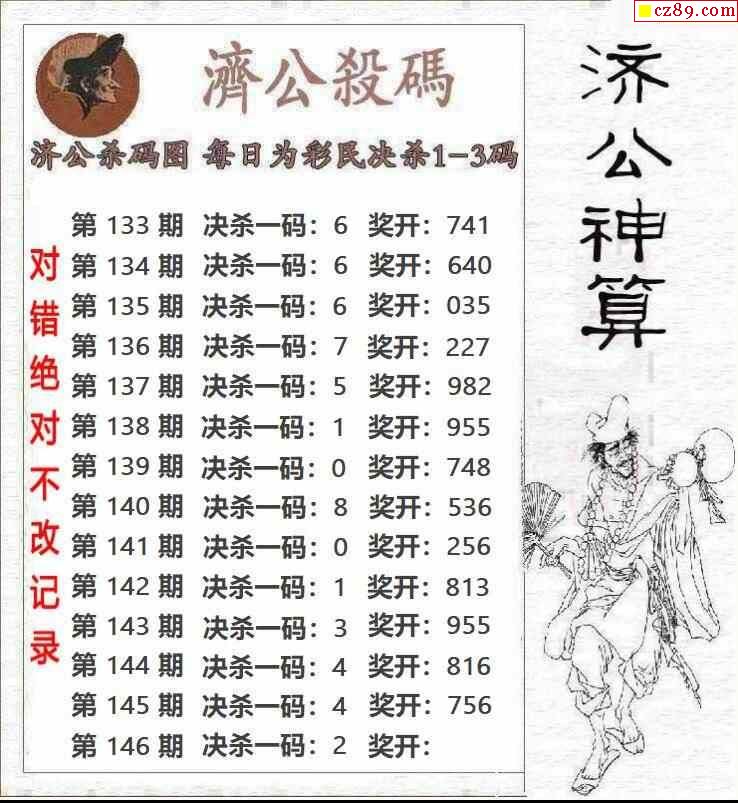 cz89.com
濟公殺碼
济公杀码图 每日为彩民决杀1-3码
第 133 期 决杀一码：6 奖开：741
第 134 期 决杀一码：6 奖开：640
第 135 期 决杀一码：6 奖开：035
第 136 期 决杀一码：7 奖开：227
第 137 期 决杀一码：5 奖开：982
第 138 期 决杀一码：1 奖开：955
第 139 期 决杀一码：0 奖开：748
第 140 期 决杀一码：8 奖开：536
第 141 期 决杀一码：0 奖开：256
第 142 期 决杀一码：1 奖开：813
第 143 期 决杀一码：3 奖开：955
第 144 期 决杀一码：4 奖开：816
第 145 期 决杀一码：4 奖开：756
第 146 期 决杀一码：2 奖开：
对错绝对不改记录
济公神算